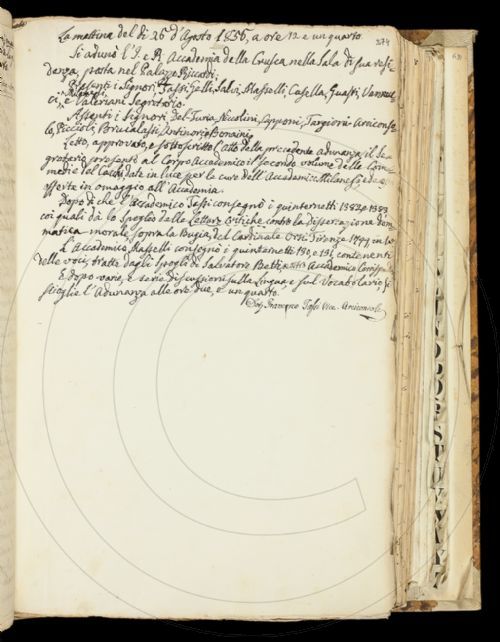 274
La mattina del dì 26 d'Agosto 1856, a ore 12 e un quarto
si adunò l'I. e R. Accademia della Crusca nella Sala di sua resi-
denza, posta nel Palazzo Riccardi.
Presenti i Signori, Tassi, Gelli, Salvi, Masselli, Casella, Guasti, Vannuc-
ci, Milanesi, e Valeriani Segretario.
Assenti i Signori Del Furia, Niccolini, Capponi, Targioni Arciconso-
lo, Piccioli, Brucalassi, Antinori e Bonaini.
Letto, approvato, e sottoscritto l'Atto della precedente adunanza, il Se-
gretario presentò al Corpo Accademico il secondo volume delle Com-
medie del Cecchi, date in luce per la cura dell'Accademico Milanesi, e da
offerte in omaggio all'Accademia.
Dopo di che l'Accademico Tassi consegnò i quinternetti 1382, e 1383
coi quali dà lo Spoglio delle Lettere critiche contro la dissertazione dom-
matica morale sopra la Bugia, del Cardinale Orsi Firenze 1744 in
L'Accademico Masselli consegnò i quinternetti 130, e 131, contenenti
nelle voci, tratte dagli Spogli di Salvatore Betti, Accademico Corrisp.
E dopo varie, e serie discussioni sulla Lingua, e sul Vocabolario, si
scioglie l'Adunanza alle ore due, e un quarto.
Francesco Tassi Vice-Arciconsolo
N O P Q R S T U V X Y Z